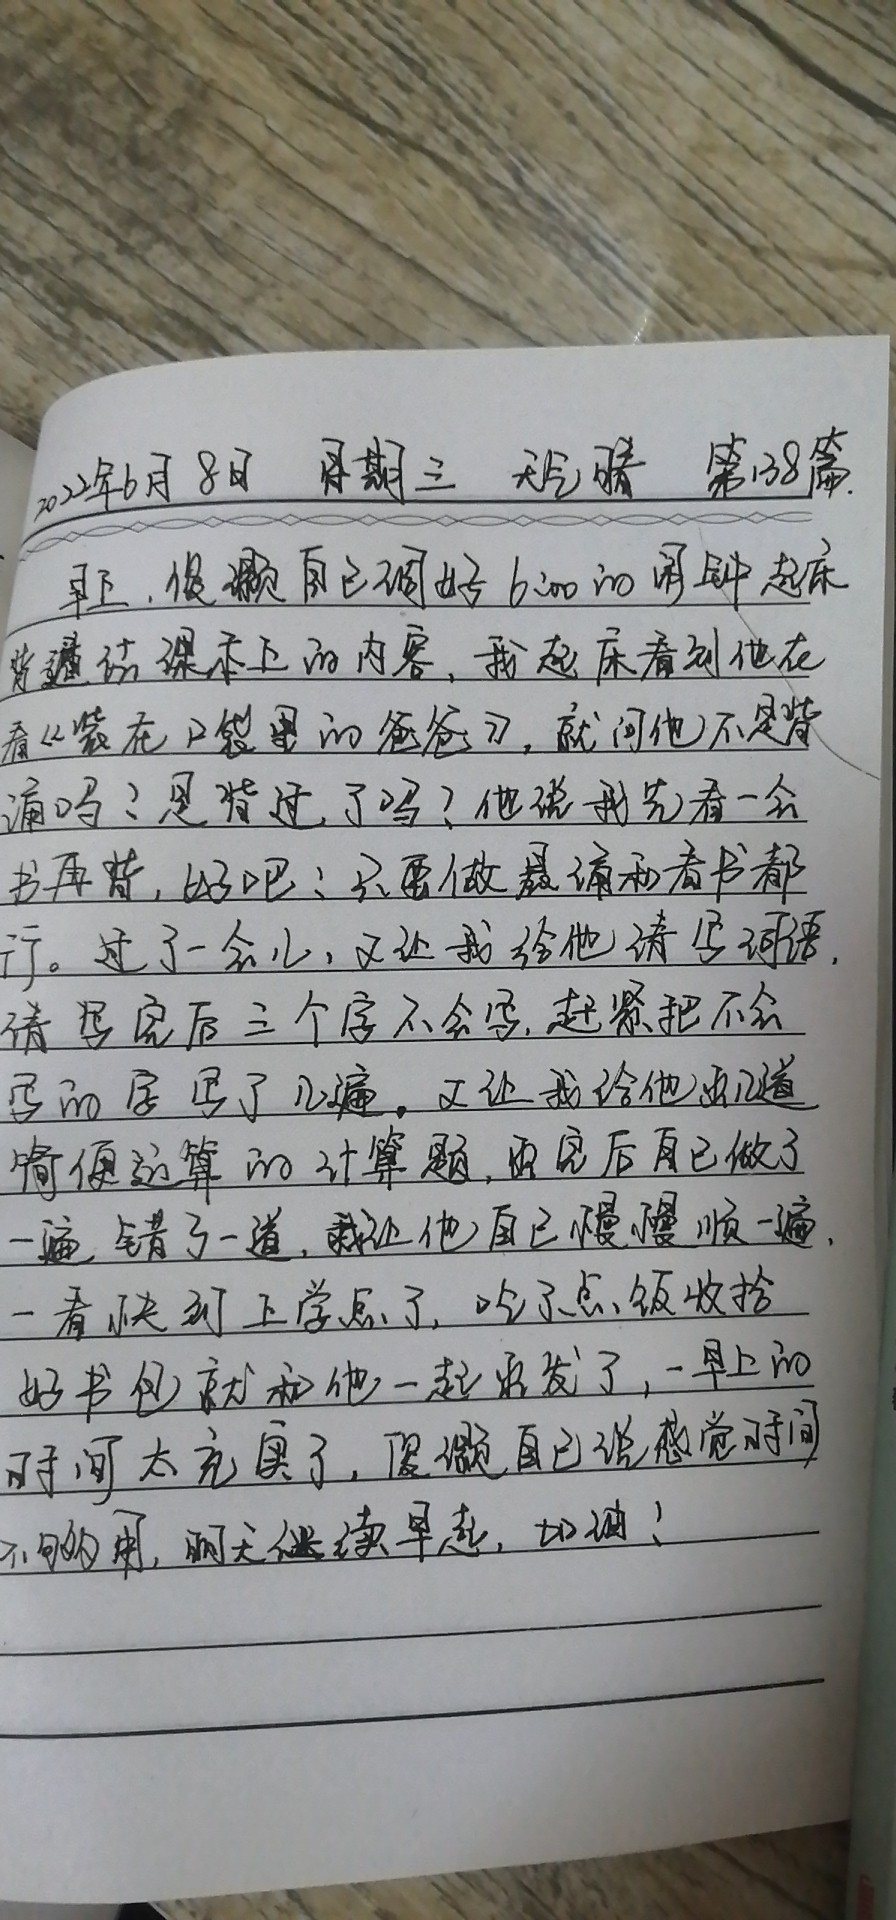 2022年6月8日 星期三 天气晴 第138篇.
早上,俊灏自己调好6:00的闹钟起床
背诵语课本上的内容,我起床看到他在
看《装在口袋里的爸爸》,就问他不是背
诵吗?是背过了吗?他说我先看一会
书再背,好吧!只要做晨诵和看书都
行。过了一会儿,又让我给他请写词语,
请写完后三个字不会写,赶紧把不会
写的字写了几遍。又让我给他出几道
简便运算的计算题,出完后自己做了
一遍错了一道,我让他自己慢慢顺一遍,
一看快到上学点了,吃了点饭收拾
好书包就和他一起出发了,一早上的
时间太充实了,俊灏自己说感觉时间
不够用,明天继续早起,加油!